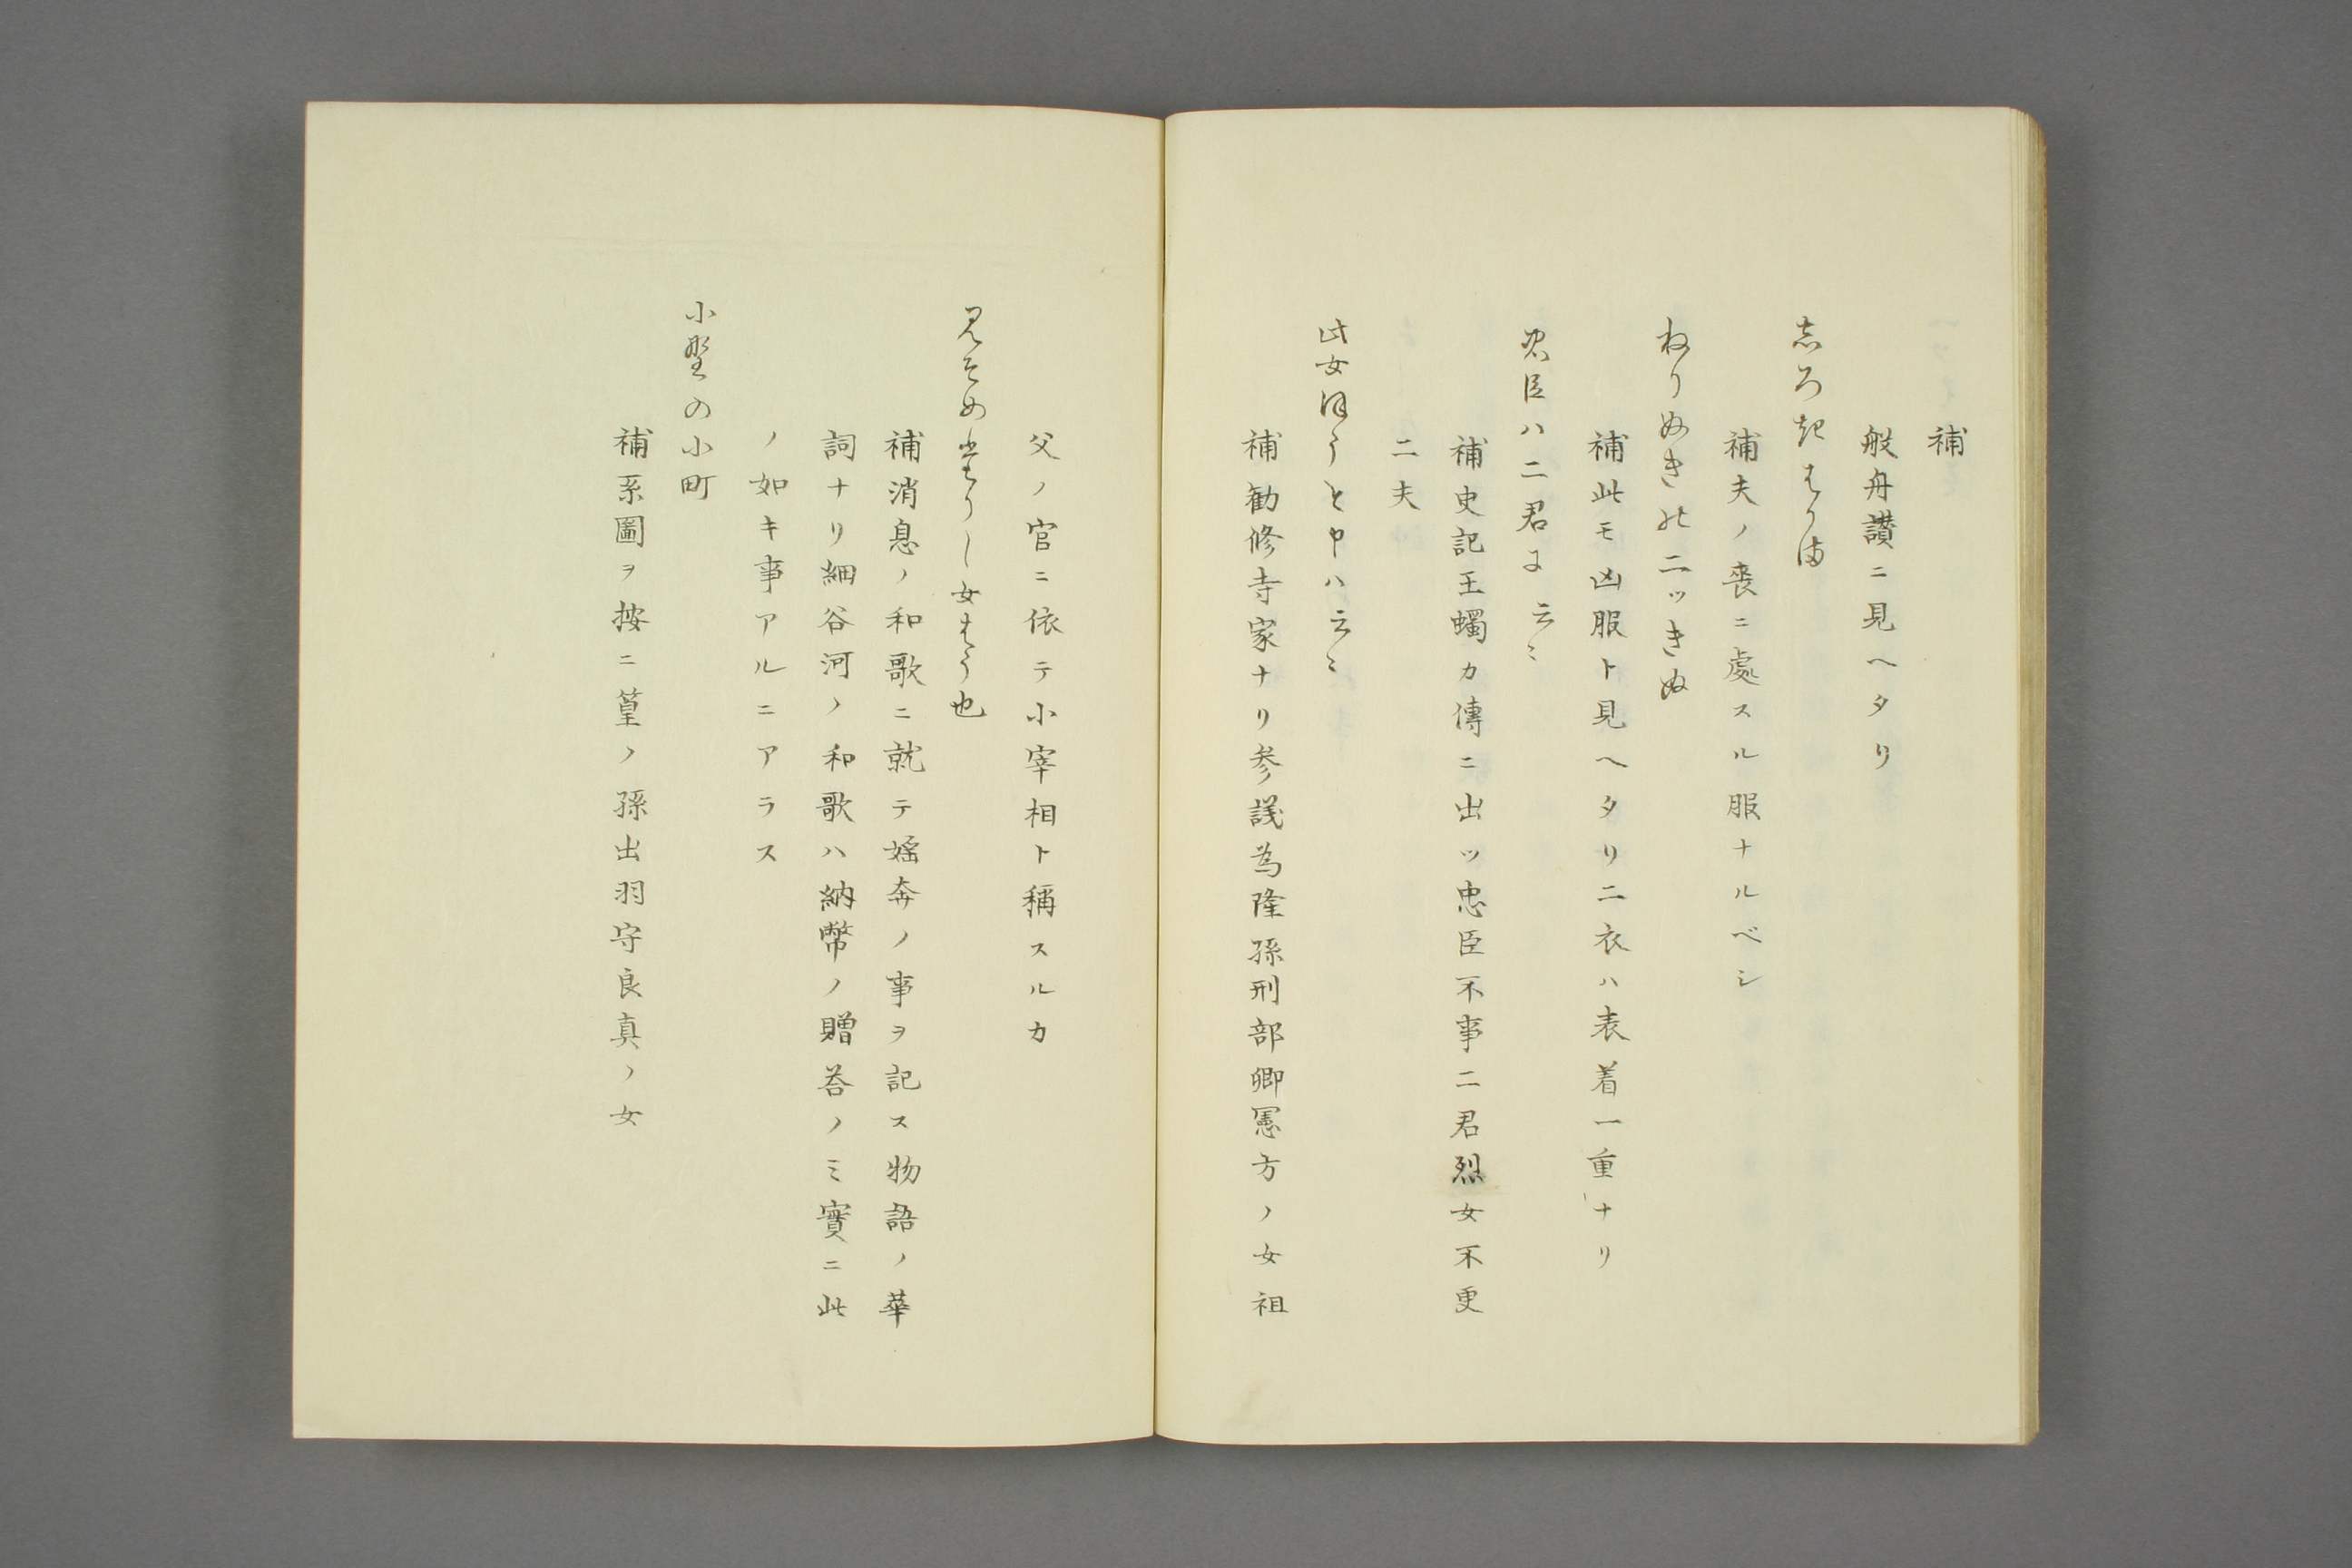 補
般舟讃ニ見ヘタリ
志ろきはかま
補夫ノ喪ニ處スル服ナルベシ
ねりぬきの二ッきぬ
補此モ凶服ト見ヘタリ二衣ハ表着一重ナリ
忠臣ハ二君に云〻
補史記王蠋カ傳ニ出ッ忠臣不事二君烈女不更
二夫
此女ほうと申ハ云〻
補勧修寺家ナリ参議為隆孫刑部卿憲方ノ女祖
父ノ官ニ依テ小宰相ト稱スルカ
見そめたりし女はう也
補消息ノ和歌ニ就テ婬奔ノ事ヲ記ス物語ノ華
詞ナリ細谷河ノ和歌ハ納幣ノ贈荅ノミ實ニ此
ノ如キ事アルニアラス
小野の小町
補系圖ヲ按ニ篁ノ孫出羽守良真ノ女